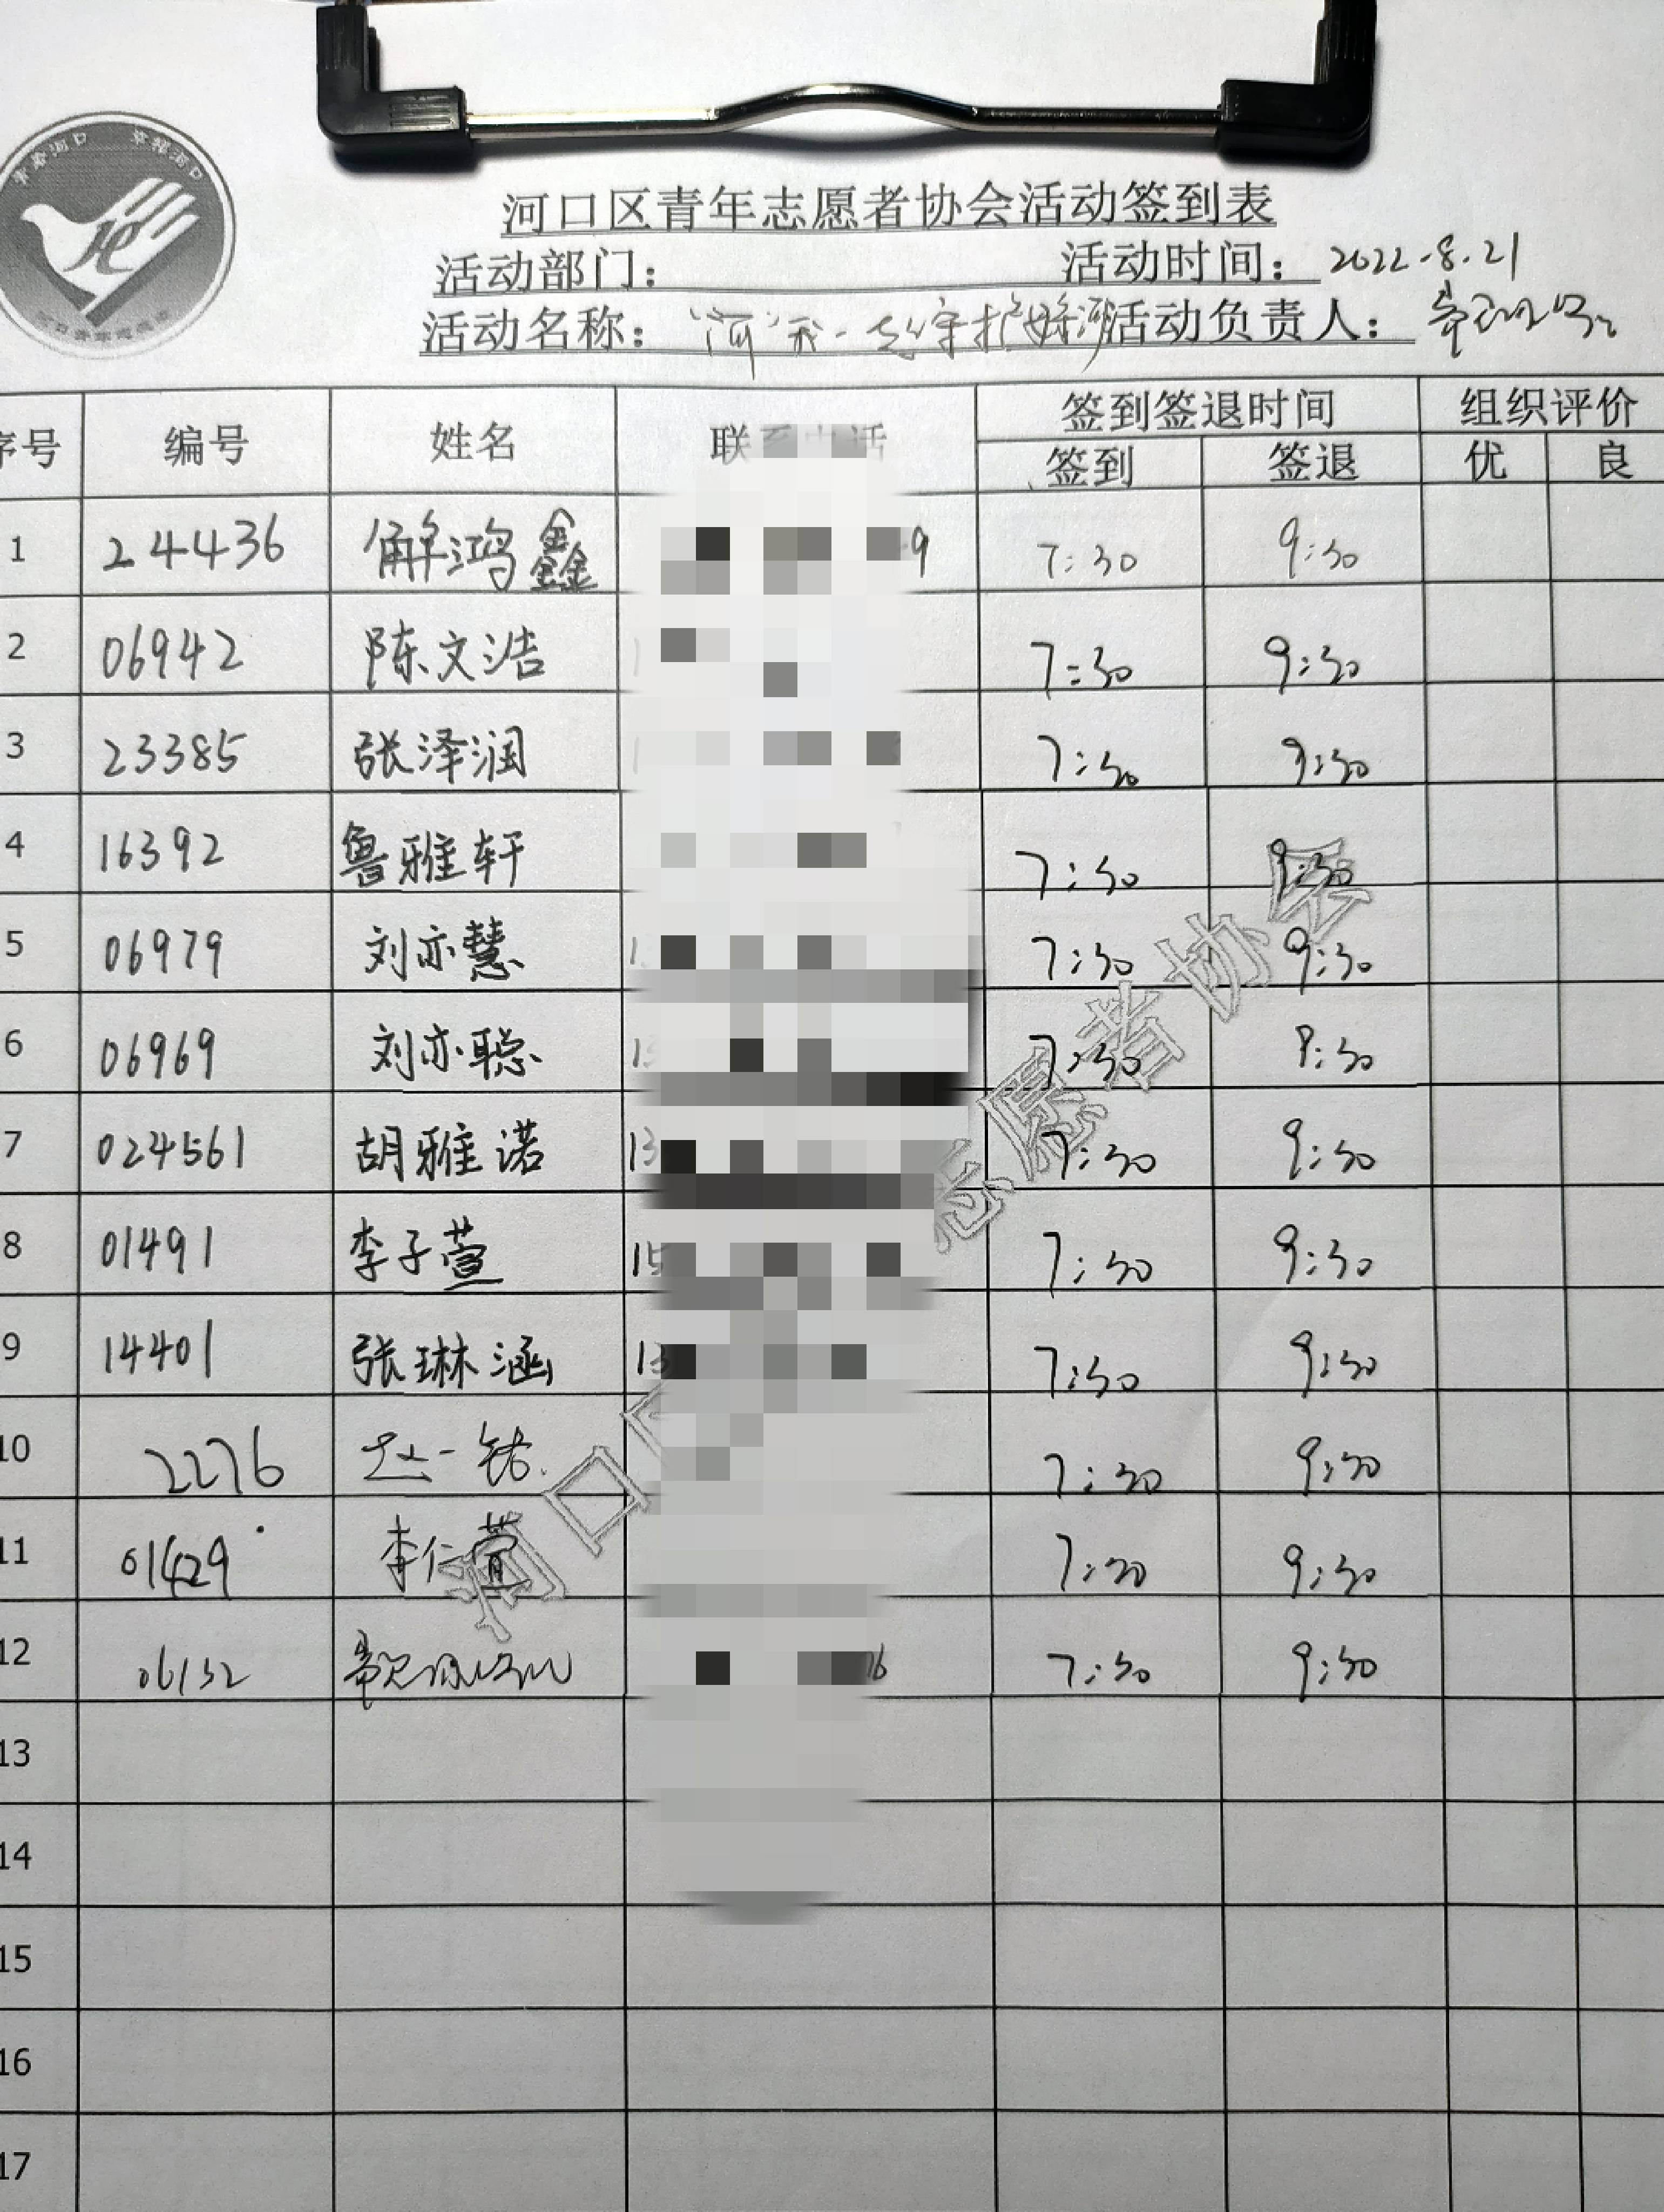 河口区青年志愿者协会活动签到表
活动部门： 活动时间：2022.8.21
活动名称："河"我一起守护 活动负责人：
序号 编号 姓名 联系电话 签到签退时间 组织评价
签到 签退 优 良
1 24436 解鸿鑫 9 7:30 9:30
2 06942 陈文浩 7:30 9:30
3 23385 张泽润 7:30 9:30
4 16392 鲁雅轩 7:30 9:30
5 06979 刘亦慧 7:30 9:30
6 06969 刘亦聪 13 7:30 9:30
7 024561 胡雅诺 13 7:30 9:30
8 01491 李子萱 15 7:30 9:30
9 14401 张琳涵 13 7:30 9:30
10 2276 7:30 9:30
11 01429 李仁萱 7:30 9:30
12 06132 76 7:30 9:30
13
14
15
16
17
河口区 志愿者协会